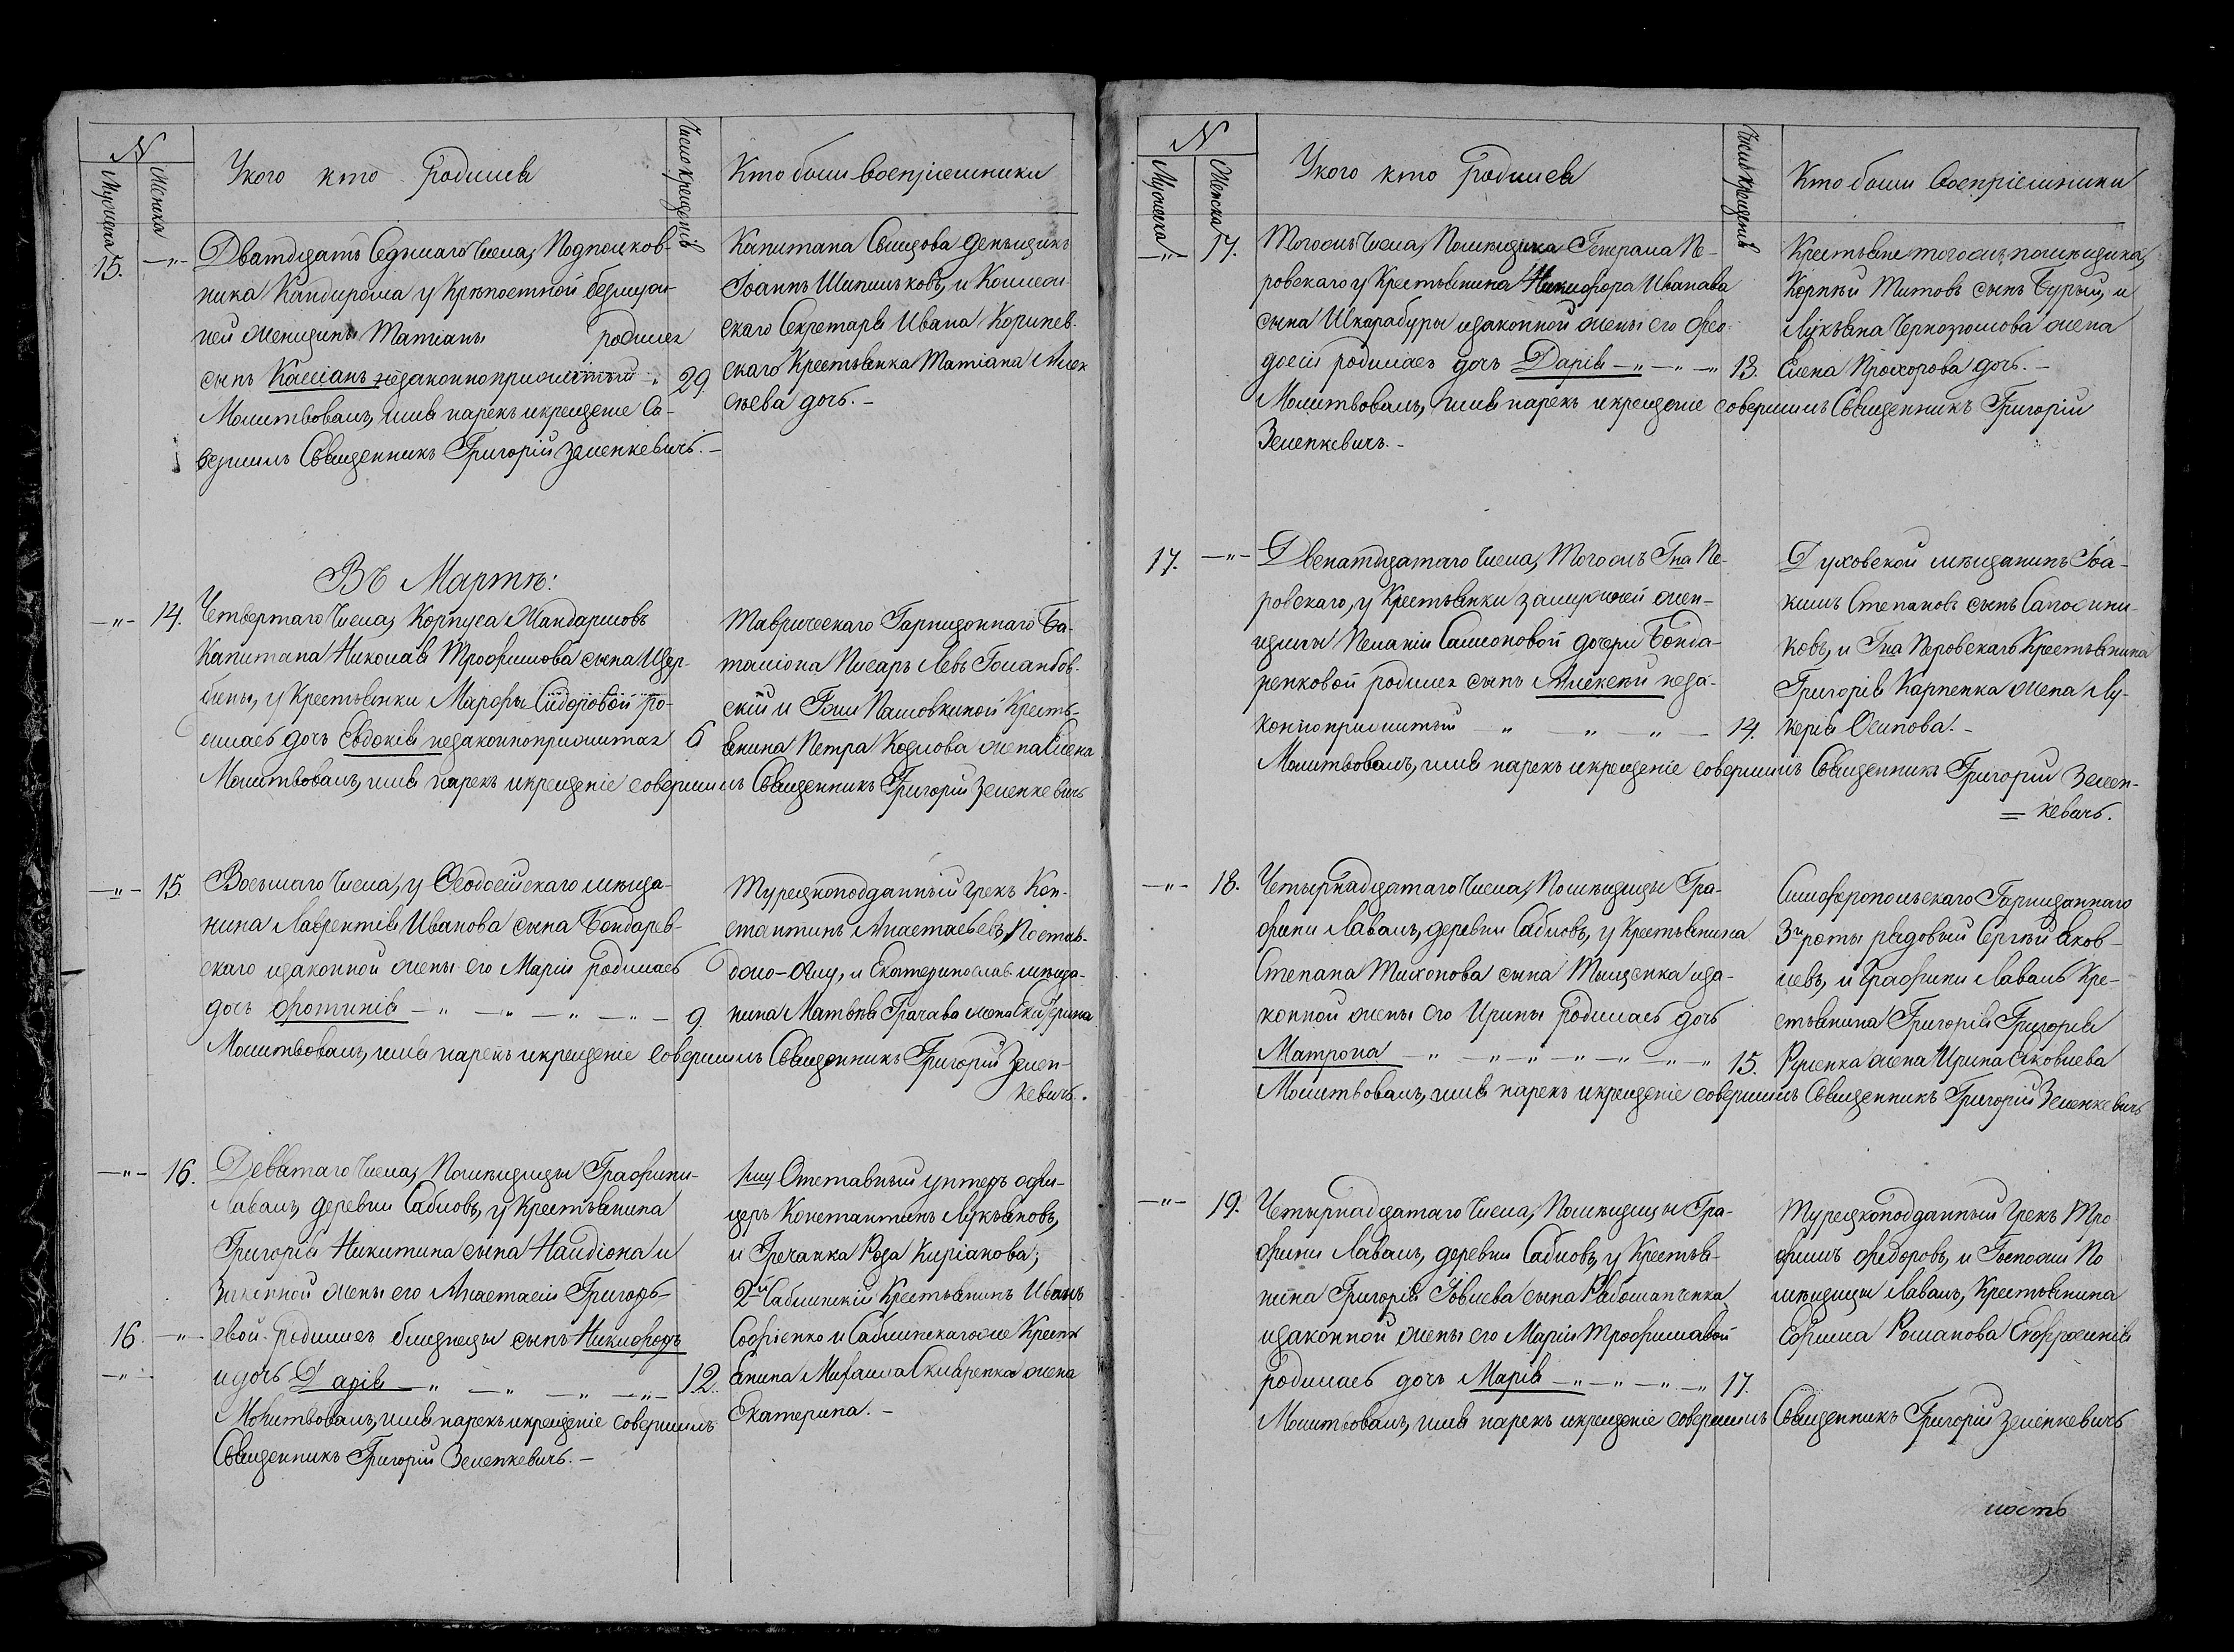 N
Мужеска
Женска
У кого кто родился
Число крещенія
Кто были воспріемники
15. —"— Дватцать Седмаго Числа, Подполков-
ника Кандирала у Крѣпостной безмуж-
ней женщины Татіаны родился
сынъ Кассіанъ незаконноприжитый 29.
Молитвовалъ, имя нарекъ и крещеніе Со-
вершилъ Священникъ Григорій Зеленкевичъ. —
Капитана Свищова деньщикъ
Іоаннъ Шипильковъ, и Коллеж-
скаго Секретаря Ивана Кориев-
скаго Крестьянка Татіана Алек
сѣева дочь. —
Въ Мартѣ:
—"— 14. Четвертаго Числа, Корпуса Жандармовъ
Капитана Николая Трофимова сына Щер-
бины, у Крестьянки Марфы Сидоровой ро-
дилась дочь Евдокія незаконноприжитая 6
Молитвовалъ, имя нарекъ и крещеніе совершилъ Священникъ Григорій Зеленкевичъ
Таврическаго Гарнизоннаго Ба-
таліона Писарь Левъ
скій и Гжи Пашовкиной Кресть-
янина Петра Козлова жена Елена
—"— 15. Восьмаго Числа, у Феодосійскаго мѣща-
нина Лаврентія Иванова сына Бондарев-
скаго и законной жены его Маріи родилась
дочь Фотинія —"—"—"— 9.
Молитвовалъ, имя нарекъ и крещеніе Совершилъ Священникъ Григорій Зелен-
кевичъ.
Турецкоподданный Грекъ Кон-
стантинъ Анастасьевъ,
и Екатеринослав. мѣща-
нина Матвѣя Грачава жена Екатерина
—"— 16. Девятаго Числа, Помѣщицы Графини
Лаваль, деревни Сабловъ, у Крестьянина
Григорія Никитина сына Найдіона и
законной жены его Анастасіи Григорь-
16. —"— явой родились близнецы сынъ Никифоръ
—"— и дочь Дарія —"—"—"— 12.
Молитвовалъ, имя нарекъ и крещеніе Совершилъ
Священникъ Григорій Зеленкевичъ. —
Отставный унтеръ офи-
церъ Константинъ Лукьяновъ,
и Гречанка Роза Киріакова;
2й Саблинскій Крестьянинъ Иванъ
Софіенко и Саблинскагоже Кресть
янина Михаила Скляренка жена
Екатерина. —
N
Мужеска
Женска
У кого кто родился
Число крещенія
Кто были Воспріемники
—"— 17. Тогожъ Числа, Помѣщика Генерала Пе-
ровскаго у Крестьянина Никифора Иванава
сына Шкарабуры и законной жены его Фео-
досіи родилась дочь Дарія —"—"— 13.
Молитвовалъ, имя нарекъ и крещеніе совершилъ Священникъ Григорій
Зеленкевичъ. —
Крестьяне тогожъ помѣщика,
Корнѣй Титовъ сынъ Бурый, и
Лукьяна Чернозомова жена
Елена Прохорова дочь. —
17. —"— Двенатцатаго Числа, Тогожъ Гна Пе-
ровскаго, у Крестьянки замужней жен-
щины Пелагіи Самсоновой дочери Бонда-
ренковой родился сынъ Алексѣй неза-
конноприжитый —"—"— 14.
Молитвовалъ, имя нарекъ и крещеніе совершилъ Священникъ Григорій Зелен-
= кевичъ.
Духовской мѣщанинъ Іоа-
кимъ Степановъ сынъ Сапожни-
ковъ, и Гна Перовскаго Крестьянина
Григорія Карпенка жена Лу-
керія Осипова. —
—"— 18. Четырнадцатаго Числа, Помѣщицы Гра-
фини Лаваль, деревни Сабловъ, у Крестьянина
Степана Тихонова сына Тыщенка и за-
конной жены его Ирины родилась дочь
Матрона —"—"—"— 15.
Молитвовалъ, имя нарекъ и крещеніе совершилъ Священникъ Григорій Зеленкевичъ
Симферопольскаго Гарнизаннаго
3й роты рядовый Сергѣй Яков-
левъ, и Графини Лаваль Кре-
стьянина Григорія Григорія
жена Ирина Яковлева
—"— 19. Четырнадцатаго Числа, Помѣщицы Гра-
фини Лаваль, деревни Сабловъ, у Крестья-
нина Григорія Іовлева сына Рабошапченка
и законной жены его Маріи Трофимавой
родилась дочь Марія —"—"— 17.
Молитвовалъ, имя нарекъ и крещеніе совершилъ Священникъ Григорій Зеленкевичъ
Турецкоподданный Грекъ Тро
фимъ Федоровъ, и Госпожи По
мѣщицы Лаваль, Крестьянина
Ефима Романова Ефросинія
ность